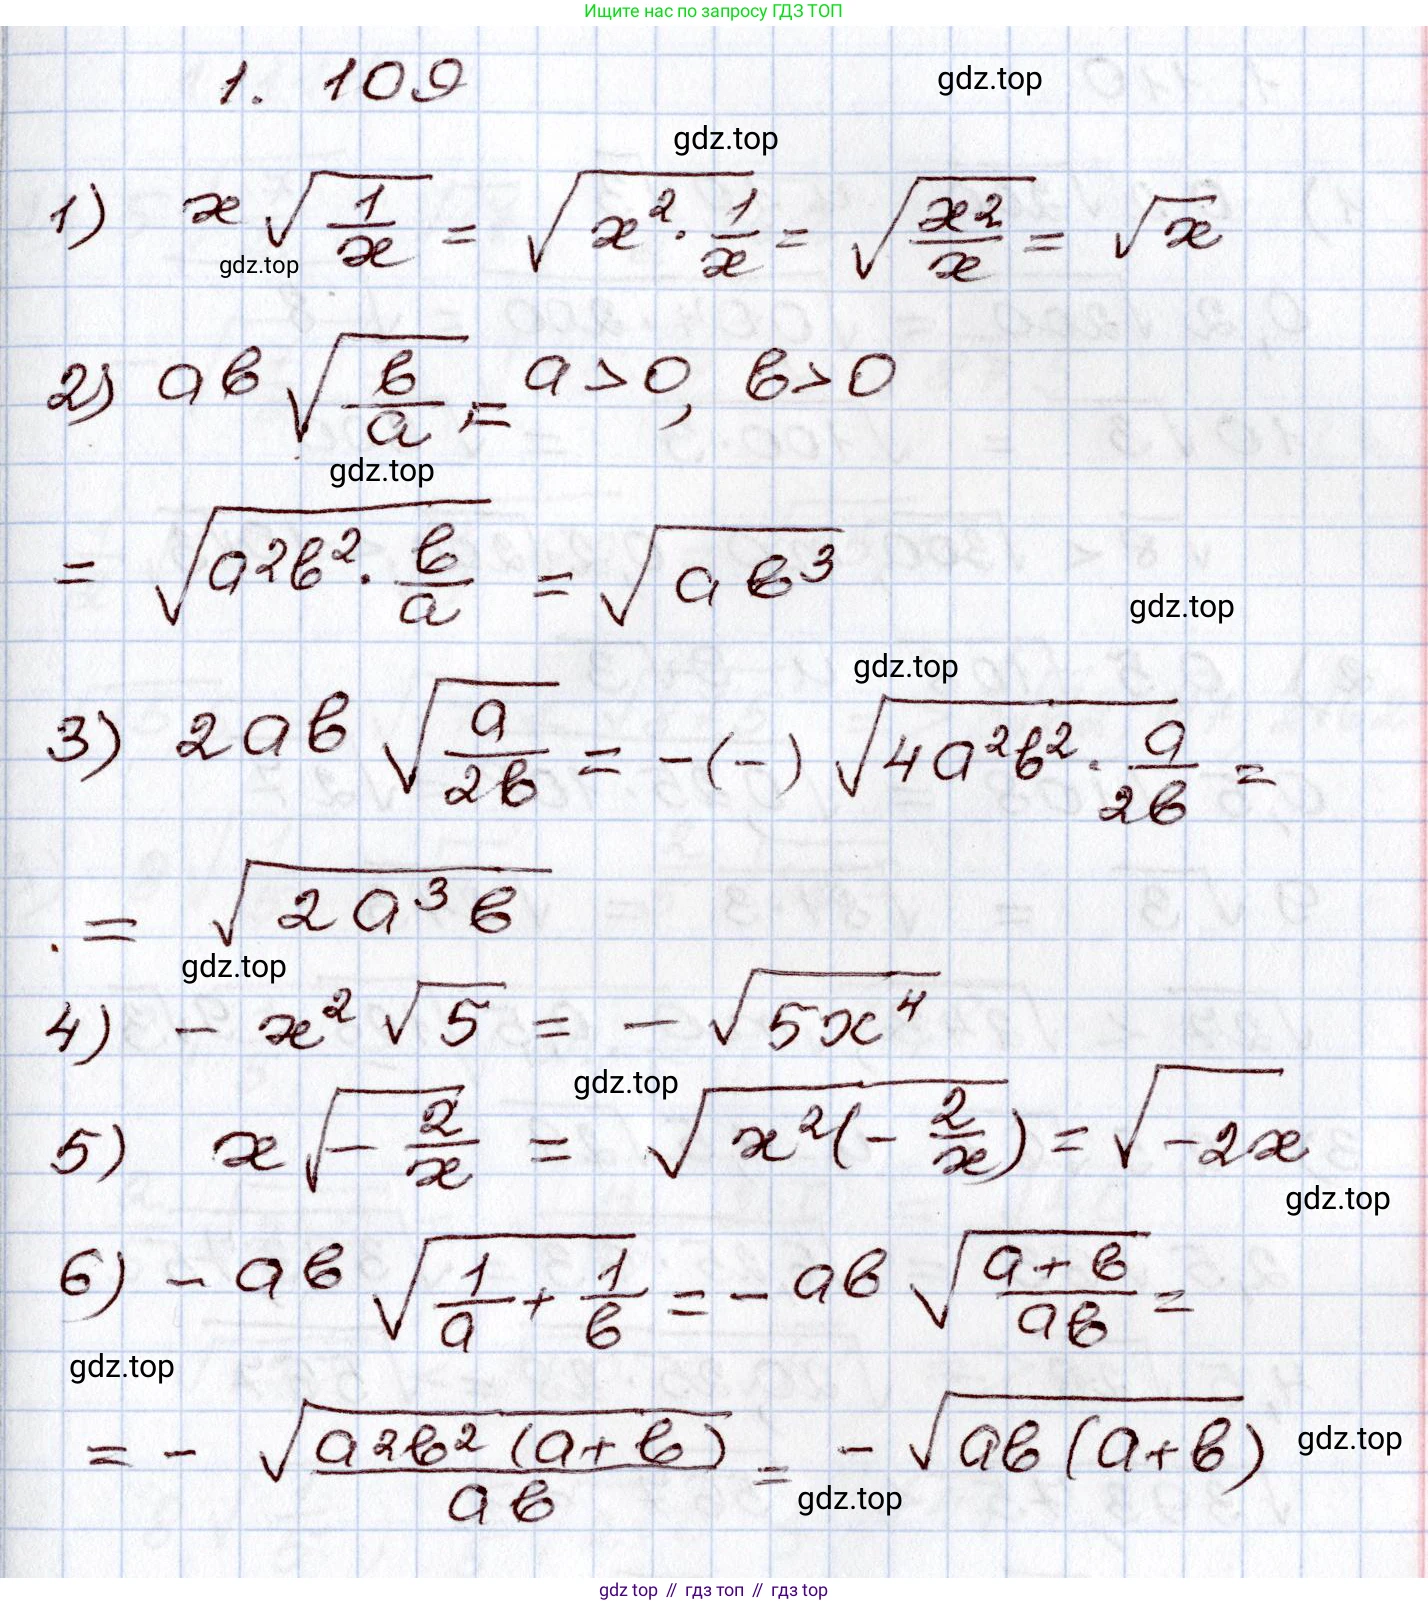 Ищите нас по запросу ГДЗ ТОП
1. 109
gdz.top
gdz.top
1) x√(1/x) = √(x² · 1/x) = √(x²/x) = √x
gdz.top
2) ab√(b/a), a > 0, b > 0 =
gdz.top
= √(a²b² · b/a) = √(ab³)
gdz.top
gdz.top
3) 2ab√(a/2b) = -(-)√(4a²b² · a/2b) =
= √(2a³b)
gdz.top
4) -x²√5 = -√(5x⁴)
gdz.top
5) x√(-2/x) = √(x²(-2/x)) = √(-2x)
gdz.top
6) -ab√(1/a + 1/b) = -ab√((a+b)/ab) =
gdz.top
= -√(a²b²(a+b)/ab) = -√(ab(a+b))
gdz.top
gdz.top
gdz top // гдз топ // гдз top